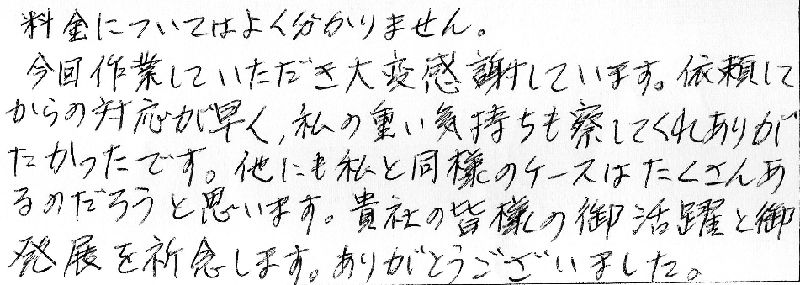 料金についてはよく分かりません。
今回作業していただき大変感謝しています。依頼して
からの対応が早く、私の重い気持ちも察してくれありが
たかったです。他にも私と同様のケースはたくさんあ
るのだろうと思います。貴社の皆様の御活躍と御
発展を祈念します。ありがとうございました。